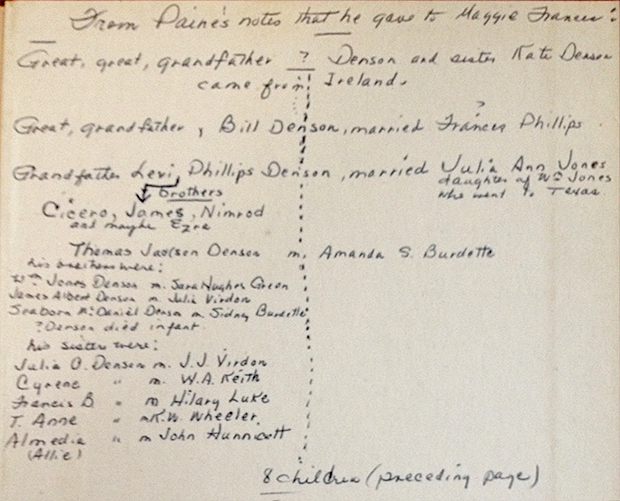 From Paine's notes that he gave to Maggie Frances:
Great, great, grandfather ? Denson and sister Kate Denson
came from Ireland.
?
Great, grandfather, Bill Denson, married Frances Phillips.
Grandfather Levi, Phillips Denson, married Julia Ann Jones
daughter of Wm Jones
who went to Texas
brothers
Cicero, James, Nimrod
and maybe Ezra
Thomas Jackson Denson m. Amanda S. Burdette
his brothers were:
Wm Jones Denson m. Sara Hughes Green
James Albert Denson m. Julia Virdon
Seaborn McDaniel Denson m. Sidney Burdette
? Denson died infant.
his sister were:
Julia O. Denson m. J.J. Virdon
Cyrene " m. W.A. Keith
Francis B " m Hilary Luke
T. Anne " m K.W. Wheeler
Almedia " m John Hunnicott
(Allie)
8 children (preceding page)